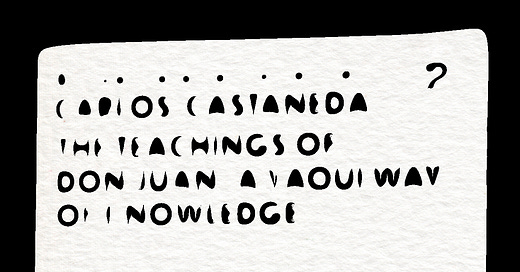 ?
CARLOS CASTANEDA
THE TEACHINGS OF
DON JUAN A YAQUI WAY
OF KNOWLEDGE